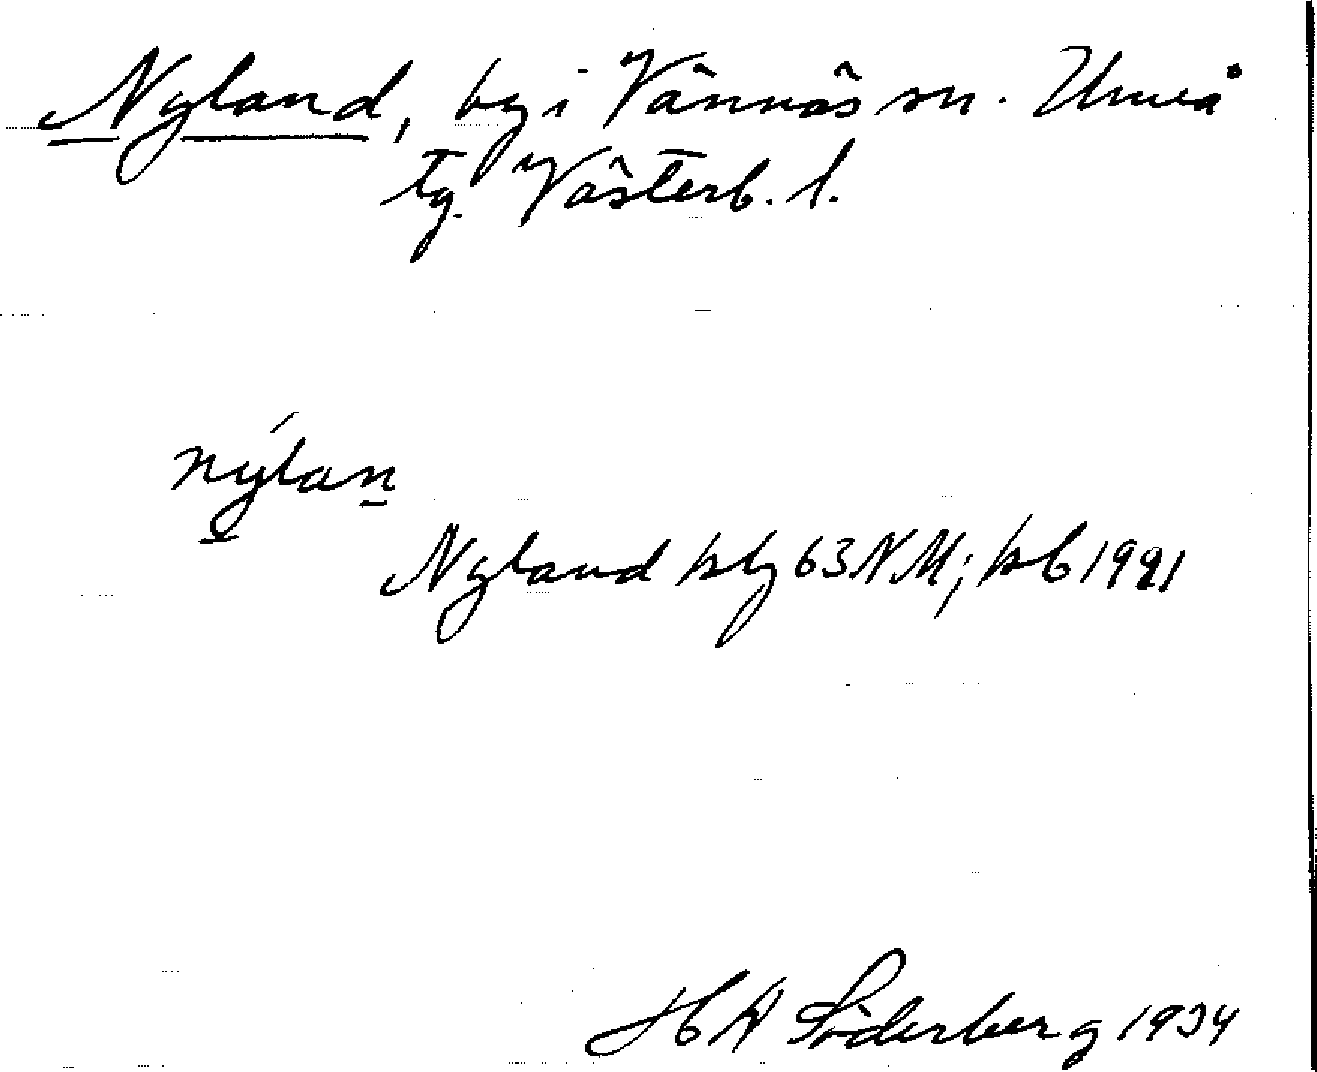 Nyland, by i Vännäs sn. Umeå
tg. Västerb. l.
nýlan
Nyland sbl 63 NM; sb 1921
H A Söderberg 1934